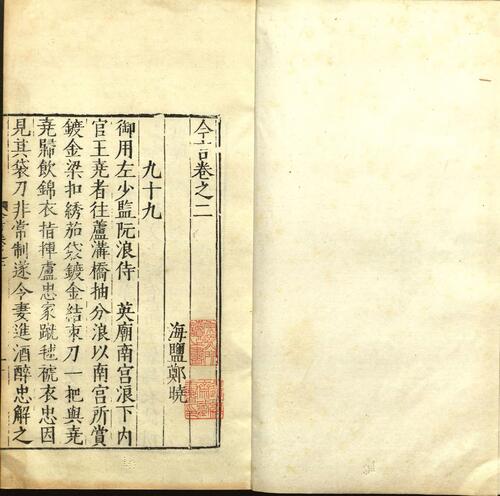 今言卷之二
海鹽鄭曉
九十九
御用左少監阮浪侍　英廟南宮浪下內
官王堯者往蘆溝橋抽分浪以南宮所賞
鍍金梁扣綉茄袋鍍金結束刀一把與堯
堯歸飲錦衣指揮盧忠家蹴毬褫衣忠因
見其袋刀非常制遂令妻進酒醉忠解之